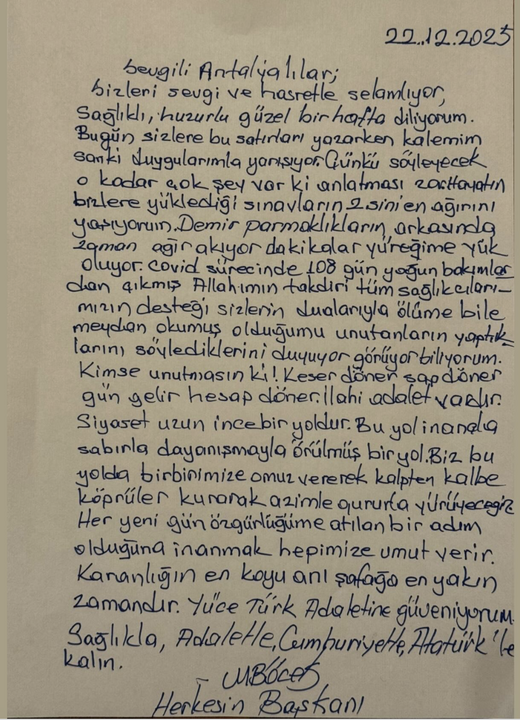 22.12.2025
Sevgili Antalyalılar;
bizleri sevgi ve hasretle selamlıyor,
Sağlıklı, huzurlu güzel bir hafta diliyorum.
Bugün sizlere bu satırları yazarken kalemim
sanki duygularımla yarışıyor. Çünkü söyleyecek
o kadar çok şey var ki anlatması zor. Hayatın
bizlere yüklediği sınavların 2.sini en ağırını
yaşıyorum. Demir parmaklıkların arkasında
zaman ağır akıyor dakikalar yüreğime yük
oluyor. Covid sürecinde 108 gün yoğun bakımlar
dan çıkmış Allahımın takdiri tüm sağlıkcıları-
mızın desteği sizlerin dualarıyla ölüme bile
meydan okumuş olduğumu unutanların yaptık-
larını söylediklerini duyuyor görüyor biliyorum.
Kimse unutmasın ki! Keser döner sap döner
gün gelir hesap döner. İlahi adalet vardır.
Siyaset uzun ince bir yoldur. Bu yol inançla
sabırla dayanışmayla örülmüş bir yol. Biz bu
yolda birbirimize omuz vererek kalpten kalbe
köprüler kurarak azimle gururla yürüyeceğiz
Her yeni gün özgürlüğüme atılan bir adım
olduğuna inanmak hepimize umut verir.
Karanlığın en koyu anı şafağa en yakın
zamandır. Yüce Türk Adaletine güveniyorum.
Sağlıkla, Adaletle, Cumhuriyetle, Atatürk'le
kalın.
MBöcek
Herkesin Başkanı